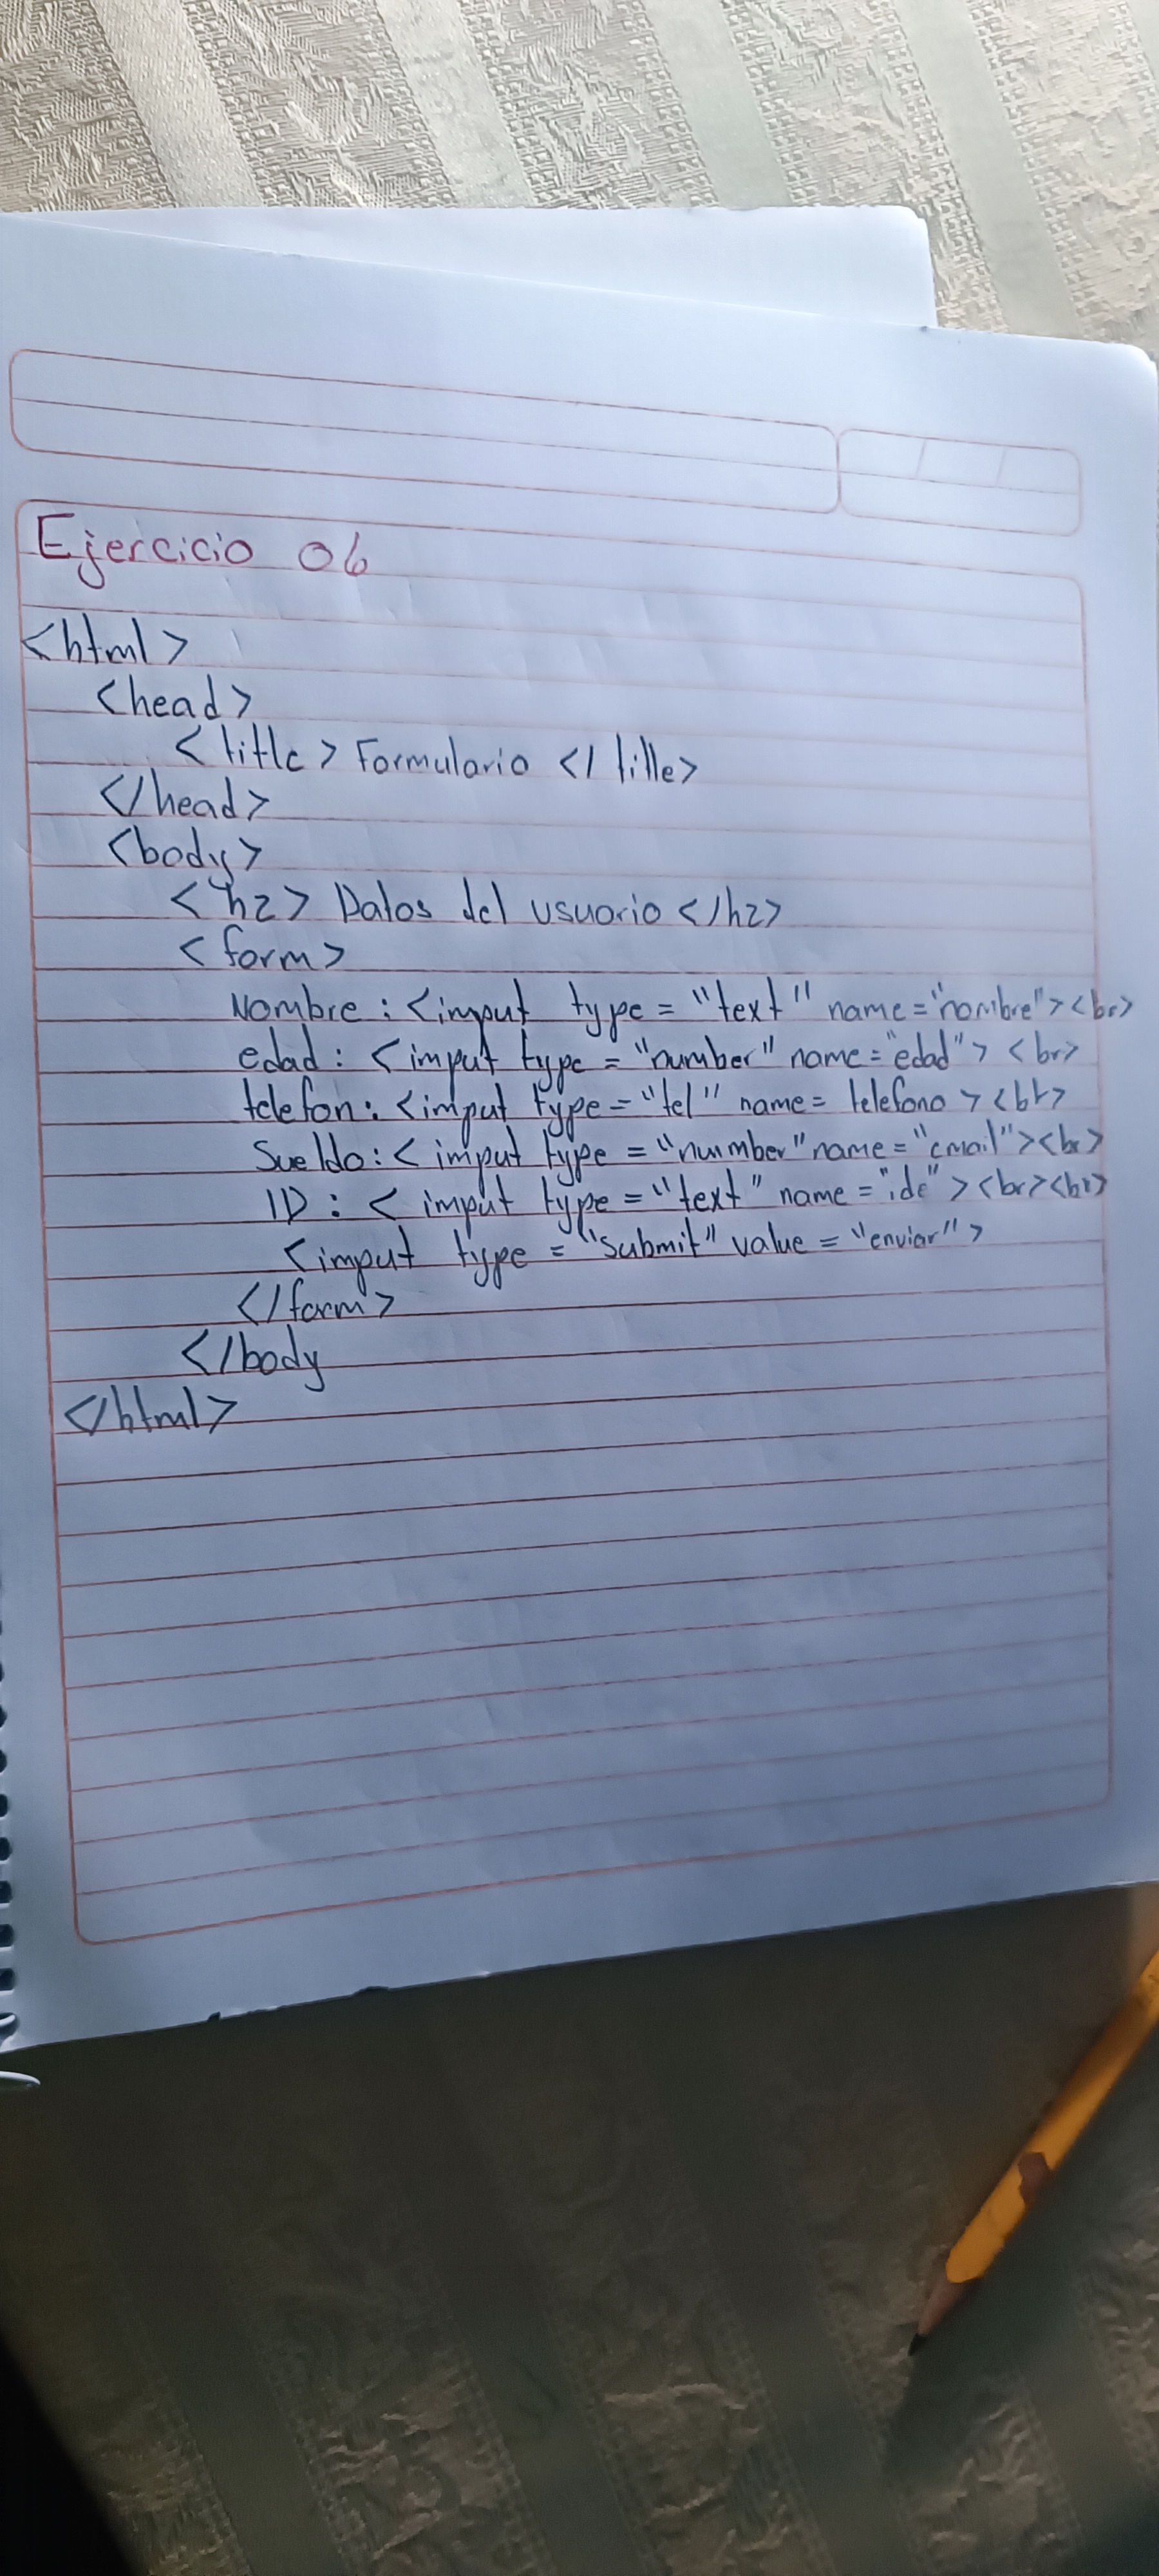 Ejercicio 06
<html>
<head>
<title> Formulario </title>
</head>
<body>
<h2> Datos del usuario </h2>
<form>
Nombre : <imput type = "text" name = "nombre"> <br>
edad : <imput type = "number" name = "edad"> <br>
telefon : <imput type = "tel" name = telefono > <br>
Sueldo : < imput type = "number" name = "email"> <br>
ID : < imput type = "text" name = "ide" > <br><br>
<imput type = "submit" value = "enviar" >
</form>
</body
</html>